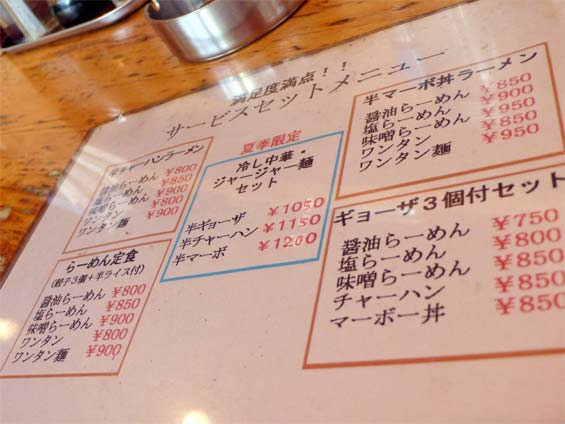 満足度満点！！
サービスセットメニュー
半チャーハンラーメン
醤油らーめん ¥800
塩らーめん ¥850
味噌らーめん ¥900
ワンタン ¥800
ワンタン麺 ¥900
らーめん定食
(餃子3個+半ライス付)
醤油らーめん ¥800
塩らーめん ¥850
味噌らーめん ¥900
ワンタン ¥800
ワンタン麺 ¥900
夏季限定
冷し中華・
ジャージャー麺
セット
半ギョーザ ¥1050
半チャーハン ¥1150
半マーボ ¥1200
半マーボ丼ラーメン
醤油らーめん ¥850
塩らーめん ¥900
味噌らーめん ¥950
ワンタン ¥850
ワンタン麺 ¥950
ギョーザ3個付セット
醤油らーめん ¥750
塩らーめん ¥800
味噌らーめん ¥850
チャーハン ¥850
マーボー丼 ¥850